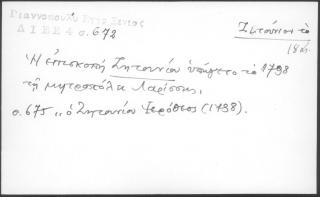 Γιαννοπούλου
Δ Ι Ε Ε 4 σ. 672
Ζητούνιον το
Ἡ ἐπισκοπὴ Ζητουνίου ὑπήγετο τὸ 1798
τῇ μητροπόλει Λαρίσσης,
σ. 675 „ὁ Ζητουνίου Ἱερόθεος (1798).